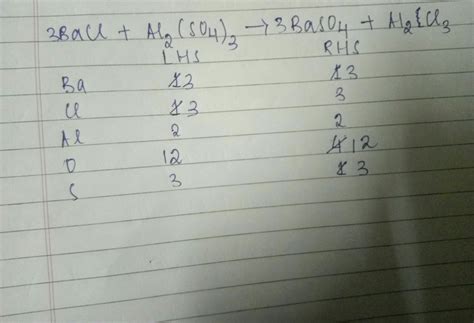 3BaCl + Al2(SO4)3 → 3BaSO4 + Al2Cl3
LHS RHS
Ba 13 13
Cl 13 3
Al 2 2
O 12 4 12
S 3 1 3